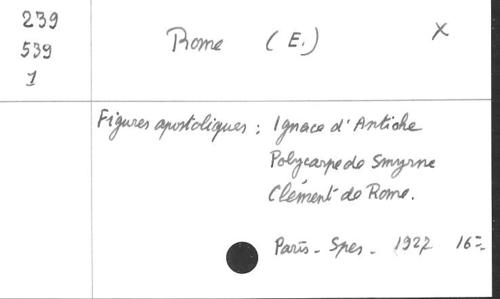 239
539
1
Rome (E.) X
Figures apostoliques : Ignace d'Antiche
Polycarpe de Smyrne
Clément de Rome.
Paris - Spes - 1927 16=